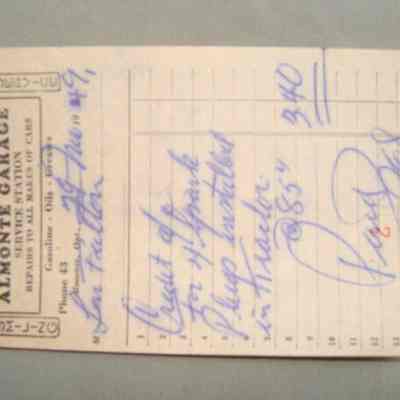 ALMONTE GARAGE
SERVICE STATION
REPAIRS TO ALL MAKES OF CARS
Gasoline - Oils - Greases
Phone 43
Almonte, Ont., 29 Nov 1949,
M Len Fulton
1 Credit a/c
for 4 Spark
Plugs installed
in tractor
@ 85¢ 3.40
Paid